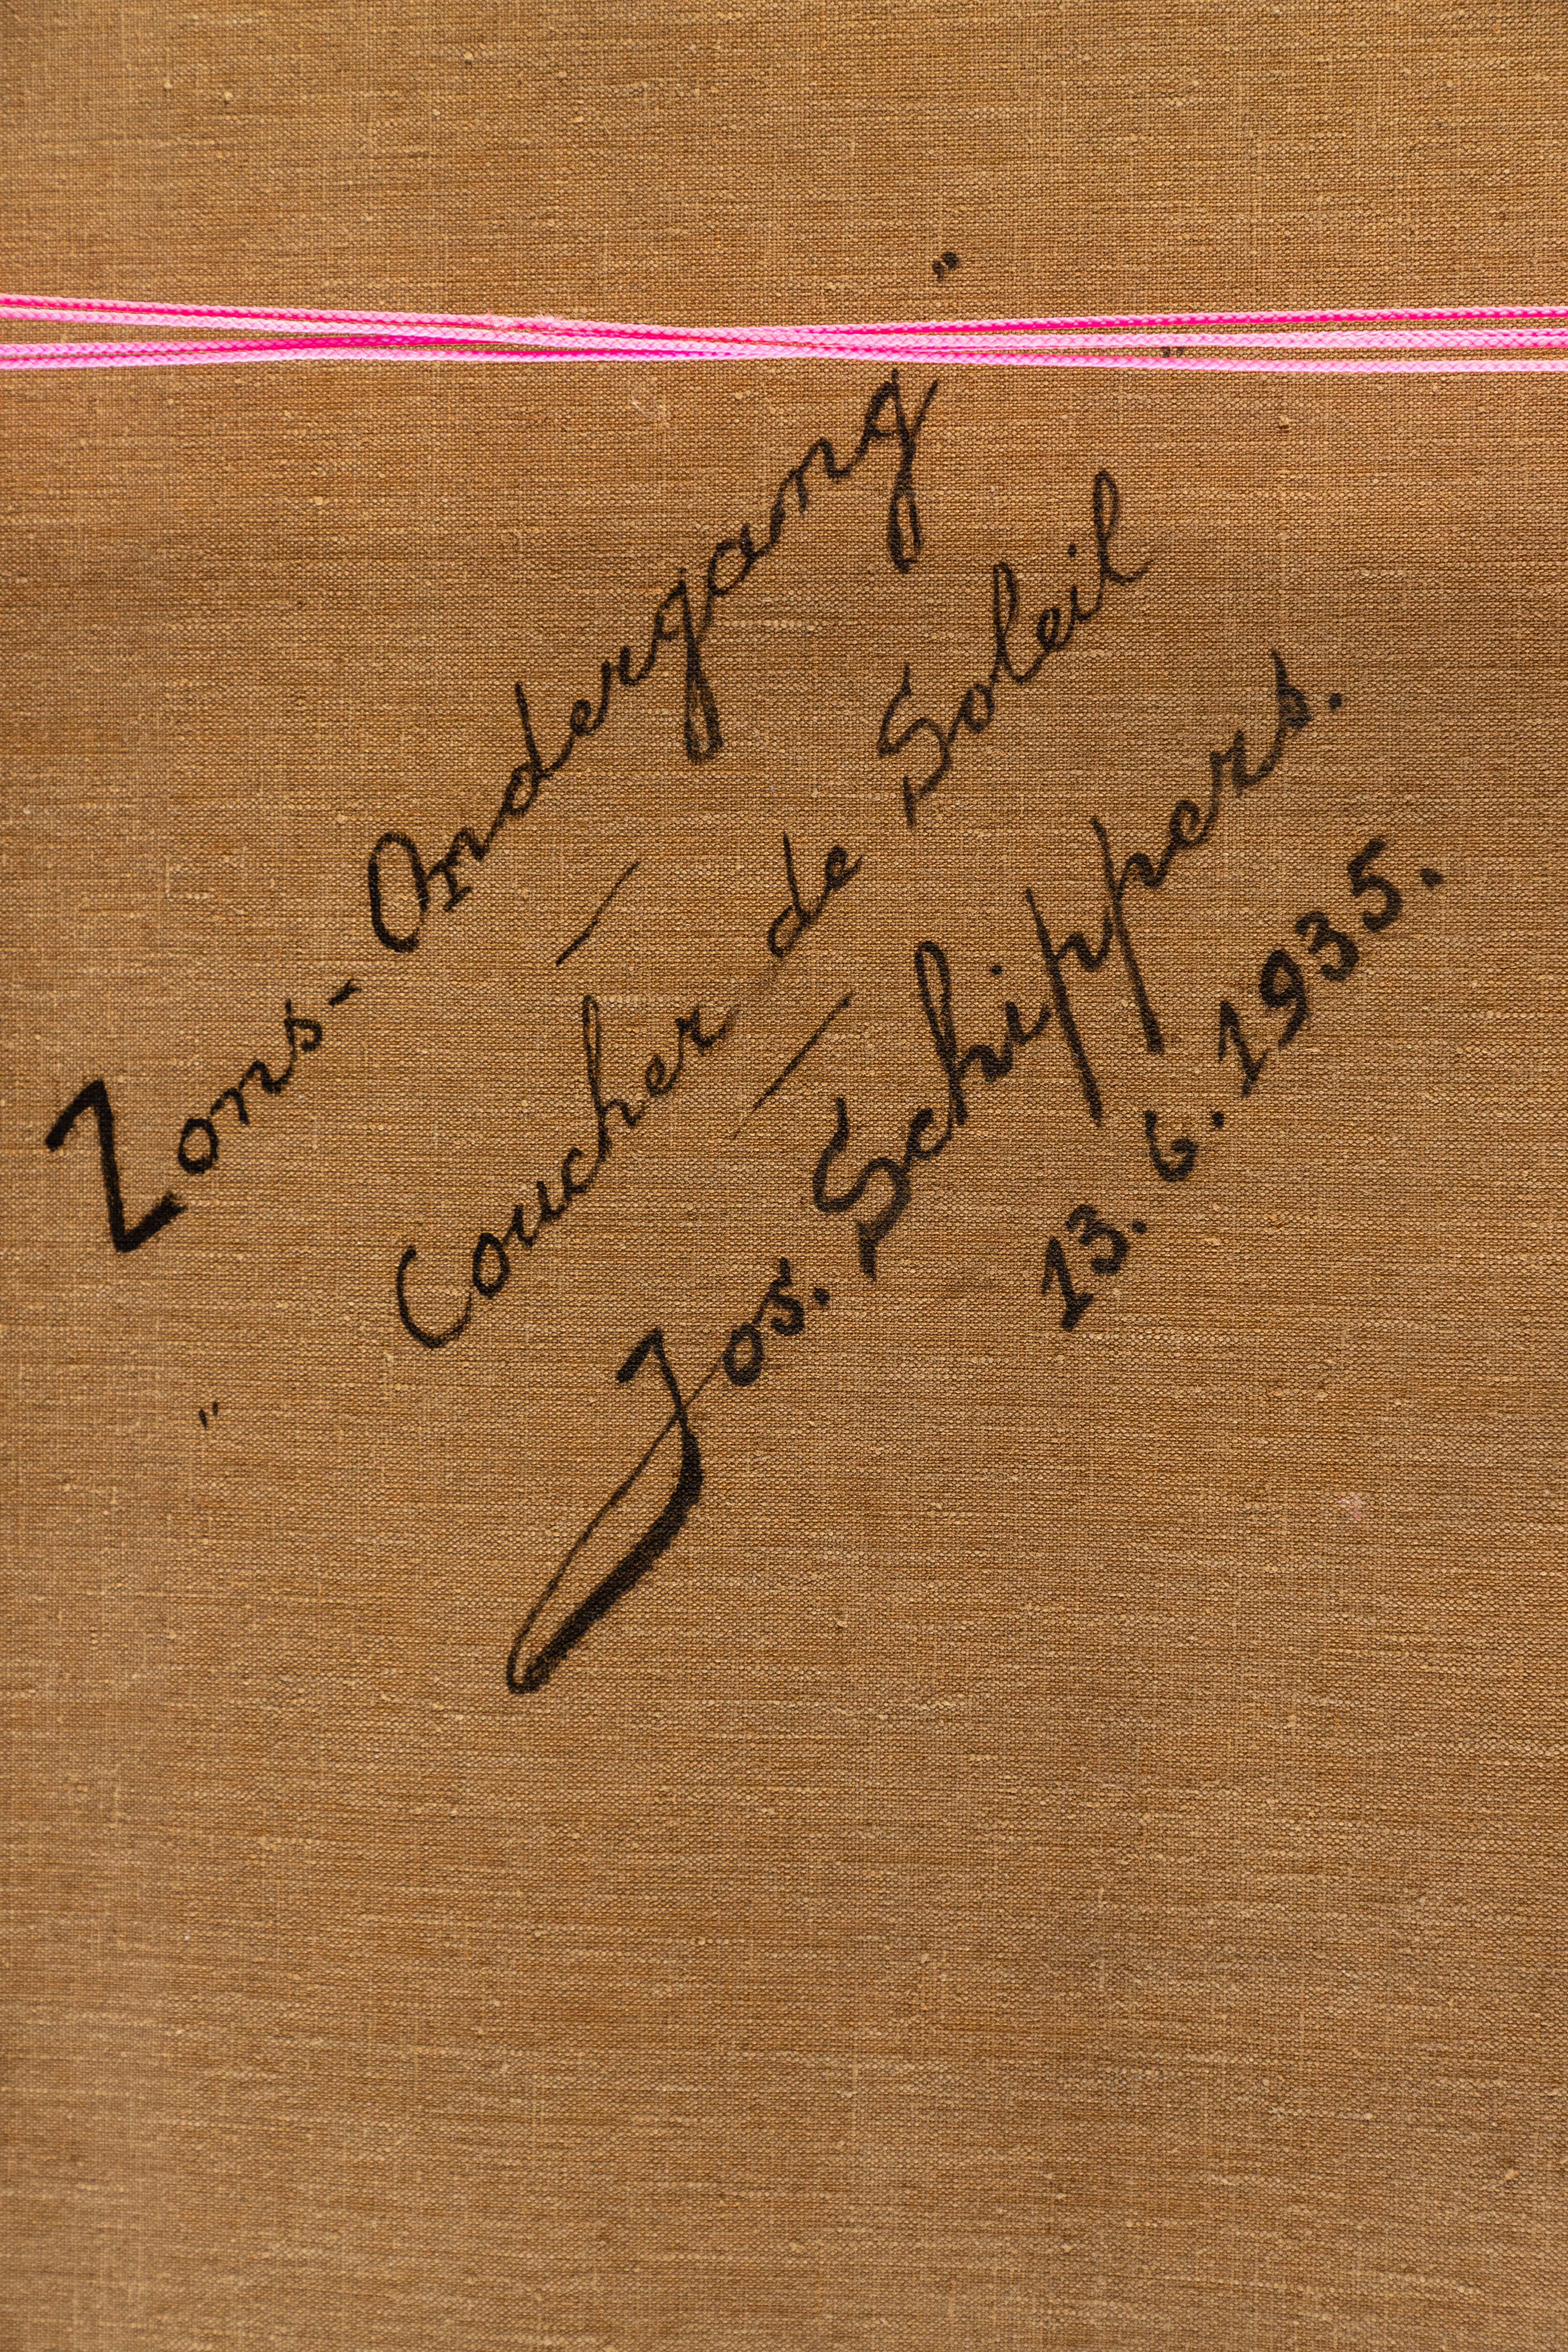 Zons-Ondergang"
—
"Coucher de Soleil"
—
Jos. Schippers.
13. 6. 1935.